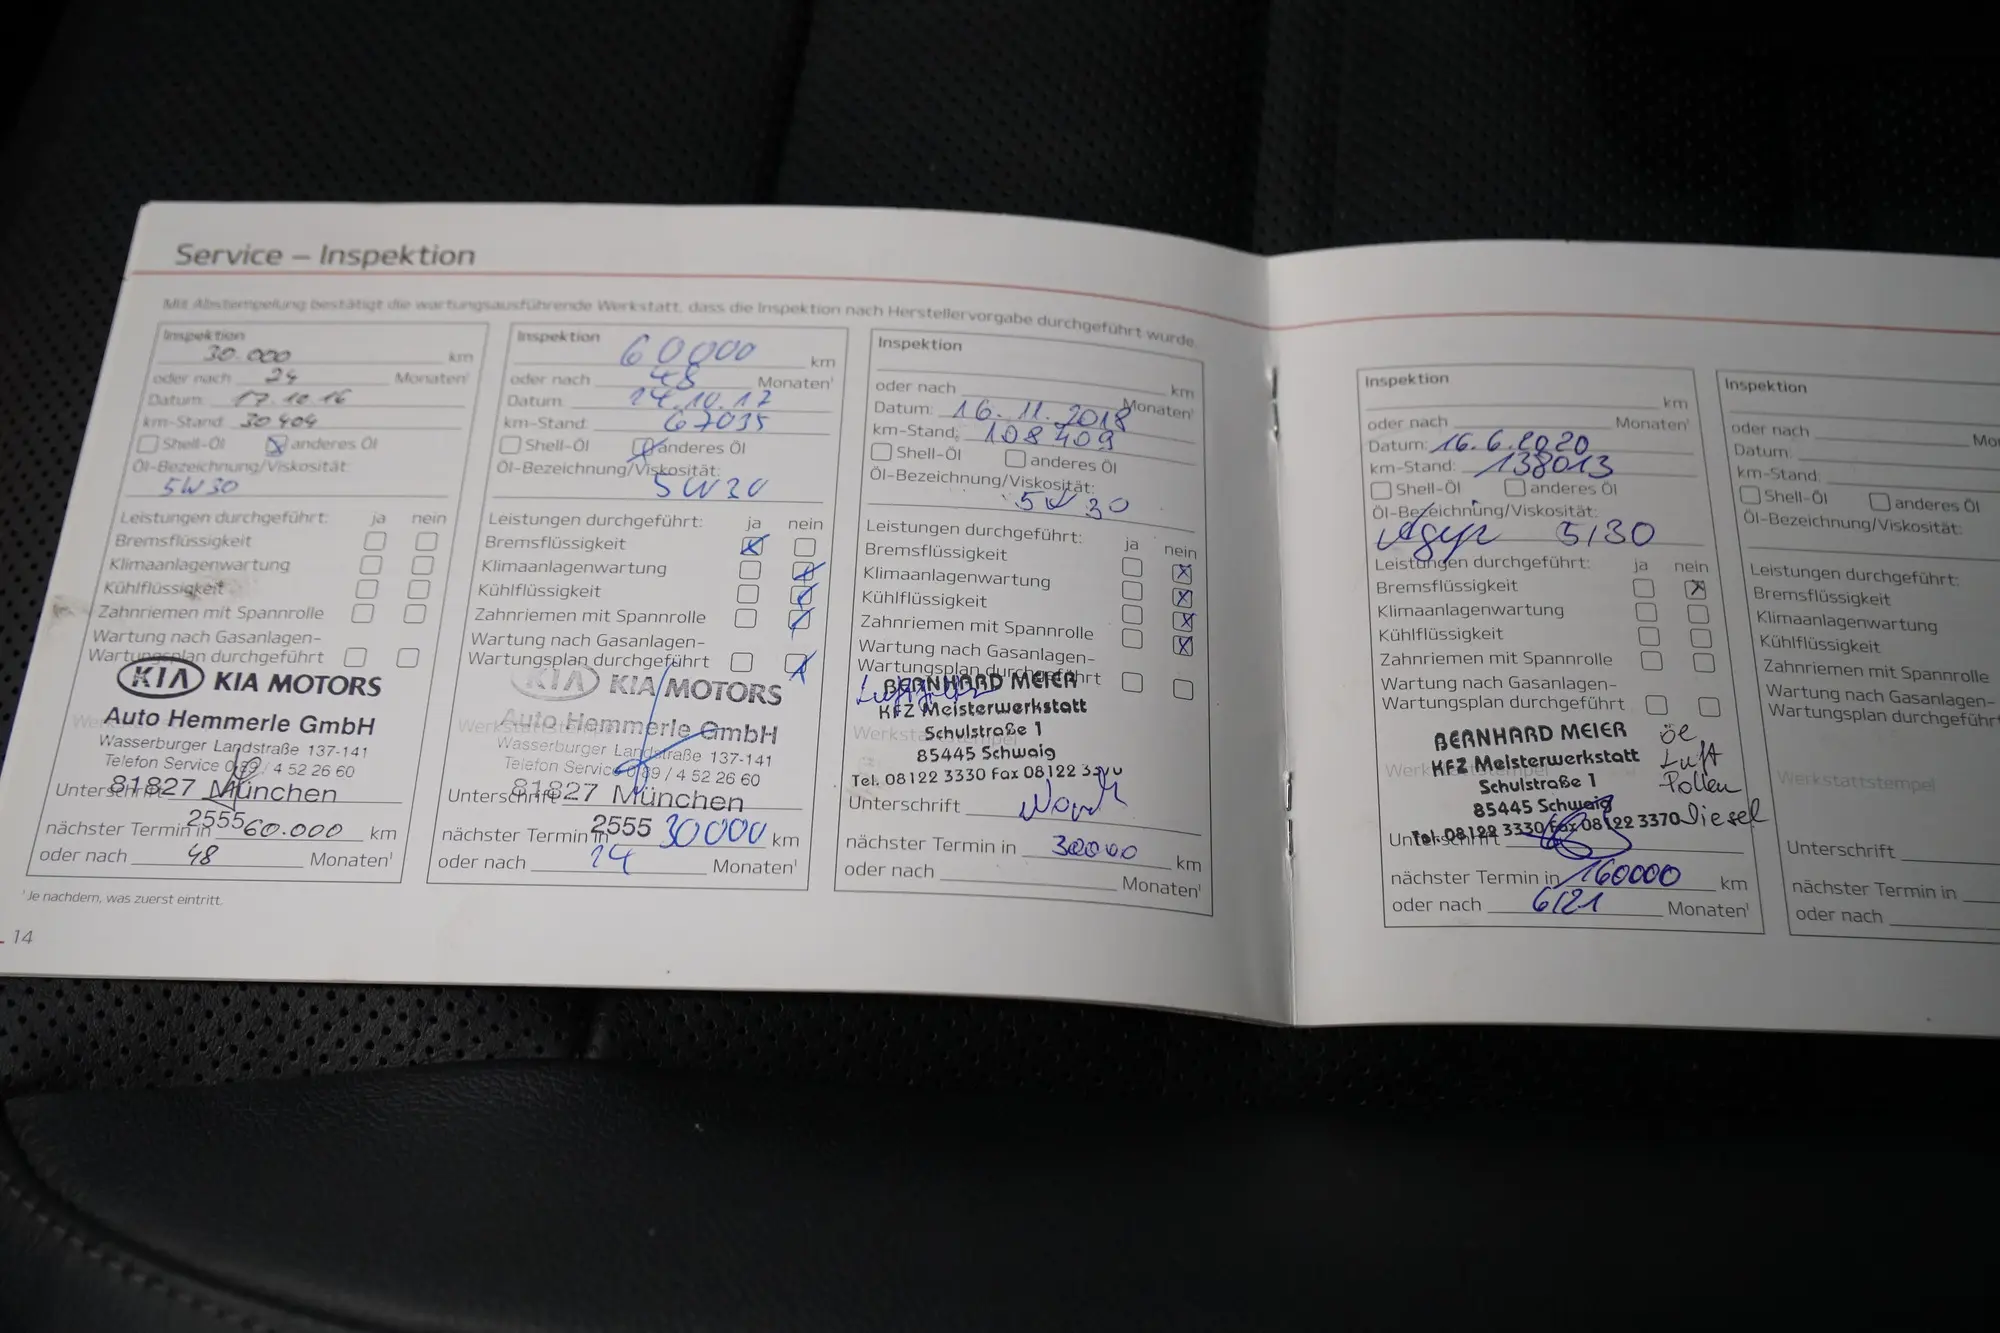 Service – Inspektion
Mit Abstempelung bestätigt die wartungsausführende Werkstatt, dass die Inspektion nach Herstellervorgabe durchgeführt wurde.
Inspektion
30.000 km
oder nach 24 Monaten¹
Datum: 17.10.16
km-Stand: 30404
Shell-Öl anderes Öl
Öl-Bezeichnung/Viskosität:
5W30
Leistungen durchgeführt: ja nein
Bremsflüssigkeit
Klimaanlagenwartung
Kühlflüssigkeit
Zahnriemen mit Spannrolle
Wartung nach Gasanlagen-
Wartungsplan durchgeführt
KIA KIA MOTORS
Auto Hemmerle GmbH
Wasserburger Landstraße 137-141
Telefon Service 089 / 4 52 26 60
81827 München
Unterschrift
2555
nächster Termin in 60.000 km
oder nach 48 Monaten¹
¹ Je nachdem, was zuerst eintritt.
14
Inspektion
60000 km
oder nach 48 Monaten¹
Datum: 24.10.17
km-Stand: 67035
Shell-Öl anderes Öl
Öl-Bezeichnung/Viskosität:
5W30
Leistungen durchgeführt: ja nein
Bremsflüssigkeit
Klimaanlagenwartung
Kühlflüssigkeit
Zahnriemen mit Spannrolle
Wartung nach Gasanlagen-
Wartungsplan durchgeführt
KIA KIA MOTORS
Auto Hemmerle GmbH
Wasserburger Landstraße 137-141
Telefon Service 089 / 4 52 26 60
81827 München
Unterschrift
2555
nächster Termin in 30000 km
oder nach 24 Monaten¹
Inspektion
km
oder nach Monaten¹
Datum: 16.11.2018
km-Stand: 108409
Shell-Öl anderes Öl
Öl-Bezeichnung/Viskosität:
5W30
Leistungen durchgeführt: ja nein
Bremsflüssigkeit
Klimaanlagenwartung
Kühlflüssigkeit
Zahnriemen mit Spannrolle
Wartung nach Gasanlagen-
Wartungsplan durchgeführt
Luftfilter
BERNHARD MEIER
KFZ Meisterwerkstatt
Schulstraße 1
85445 Schwaig
Tel. 08122 3330 Fax 08122 3370
Unterschrift
nächster Termin in 30000 km
oder nach Monaten¹
Inspektion
km
oder nach Monaten¹
Datum: 16.6.2020
km-Stand: 138013
Shell-Öl anderes Öl
Öl-Bezeichnung/Viskosität:
5/30
Leistungen durchgeführt: ja nein
Bremsflüssigkeit
Klimaanlagenwartung
Kühlflüssigkeit
Zahnriemen mit Spannrolle
Wartung nach Gasanlagen-
Wartungsplan durchgeführt
BERNHARD MEIER
KFZ Meisterwerkstatt
Schulstraße 1
85445 Schwaig
Tel. 08122 3330 Fax 08122 3370
Öl
Luft
Pollen
Diesel
Unterschrift
nächster Termin in 160000 km
oder nach 6/21 Monaten¹
Inspektion
oder nach Mo
Datum:
km-Stand:
Shell-Öl anderes Öl
Öl-Bezeichnung/Viskosität:
Leistungen durchgeführt:
Bremsflüssigkeit
Klimaanlagenwartung
Kühlflüssigkeit
Zahnriemen mit Spannrolle
Wartung nach Gasanlagen-
Wartungsplan durchführ
Werkstattstempel
Unterschrift
nächster Termin in
oder nach